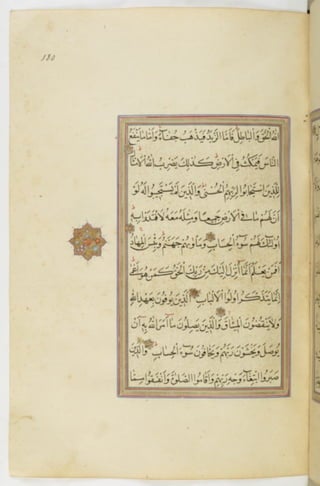 الله الحق والباطل فاما الزبد فيذهب جفاء واما ما ينفع
الناس فيمكث في الارض كذلك يضرب الله الامثال
للذين استجابوا لربهم الحسنى والذين لم يستجيبوا له لو
ان لهم ما في الارض جميعا ومثله معه لافتدوا به
اولئك لهم سوء الحساب ومأويهم جهنم وبئس المهاد
افمن يعلم انما أنزل اليك من ربك الحق كمن هو اعمى
انما يتذكر اولوا الالباب الذين يوفون بعهد الله
ولا ينقضون الميثاق والذين يصلون ما أمر الله به ان
يوصل ويخشون ربهم ويخافون سوء الحساب والذين
صبروا ابتغاء وجه ربهم واقاموا الصلوة وانفقوا مما